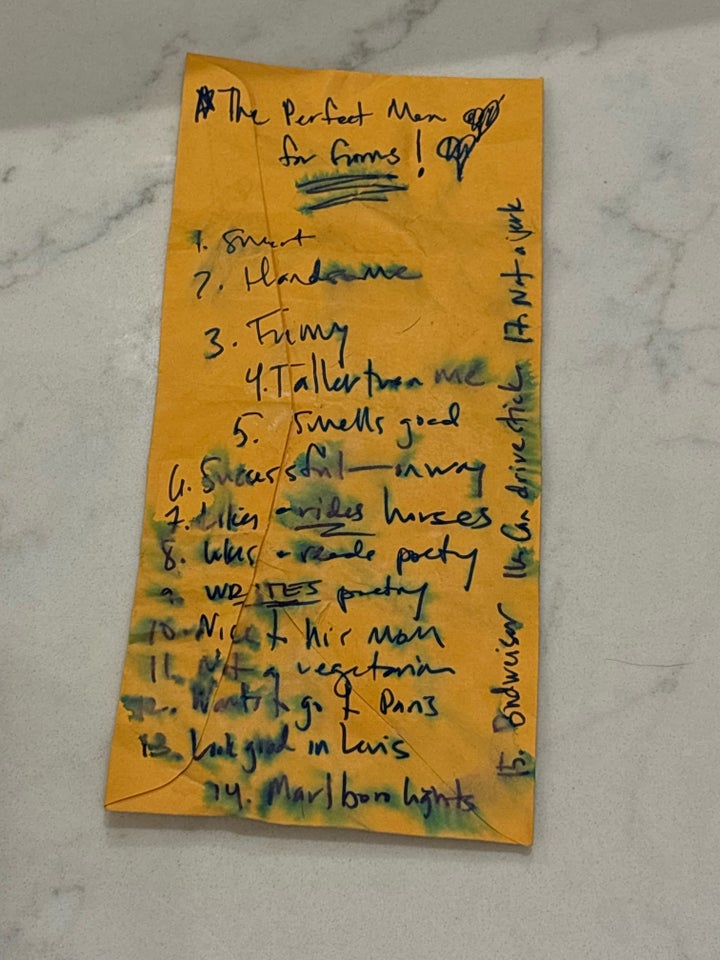 The Perfect Man
for !
1. Smart
2. Handsome
3. Funny
4. Taller than me
5. Smells good
6. Successful — in way
7. Likes + rides horses
8. Likes + reads poetry
9. WRITES poetry
10. Nice to his Mom
11. Not a vegetarian
12. Wants to go to Paris
13. Look good in Levis
14. Marlboro lights
15. Budweiser 16. Can drive stick 17. Not a jerk